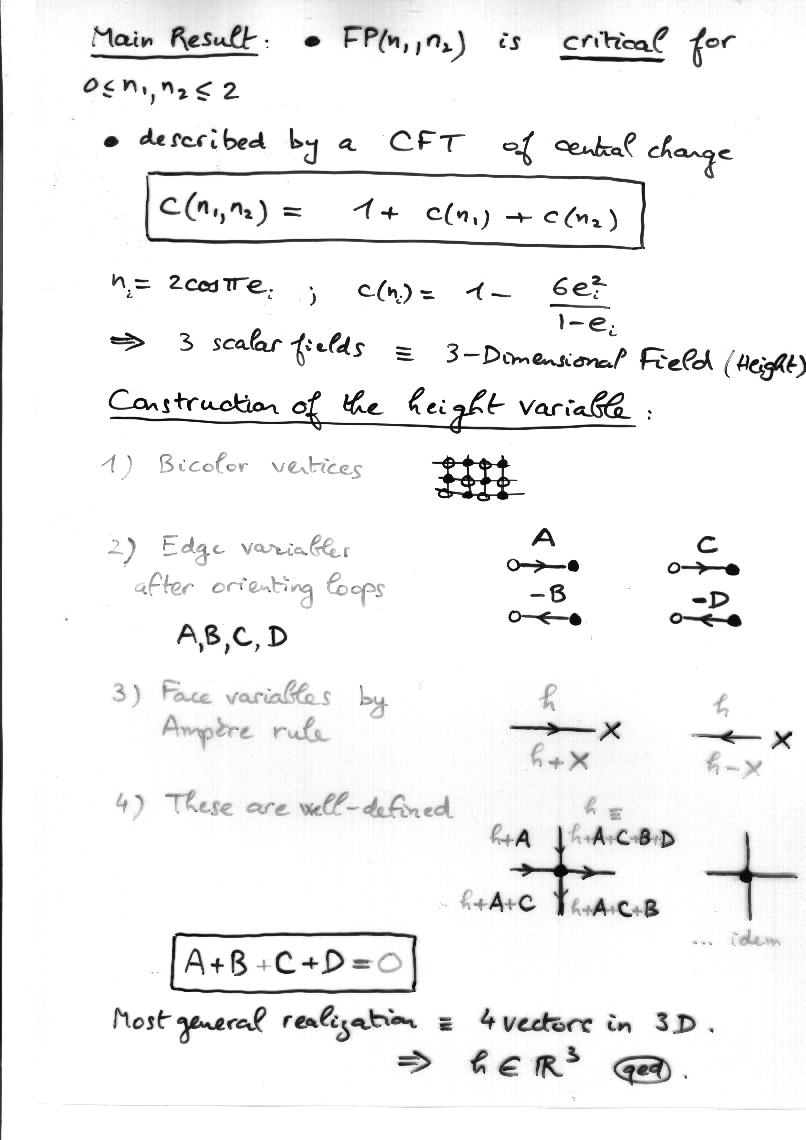 Main Result: • FP(n₁,n₂) is critical for
0≤n₁,n₂≤2
• described by a CFT of central change
C(n₁,n₂) = 1+ c(n₁) + c(n₂)
nᵢ= 2cosπeᵢ ; c(nᵢ)= 1− 6eᵢ²/1−eᵢ
⇒ 3 scalar fields ≡ 3-Dimensional Field (Height)
Construction of the height variable :
1) Bicolor vertices
2) Edge variables
after orienting loops
A,B,C,D
A
C
-B
-D
3) Face variables by
Ampère rule
h
X
h+X
h
X
h-X
4) These are well-defined
h ≡
h+A
h+A+C+B+D
h+A+C
h+A+C+B
... idem
A+B+C+D=0
Most general realization ≡ 4 vectors in 3D.
⇒ h ∈ ℝ³ qed.